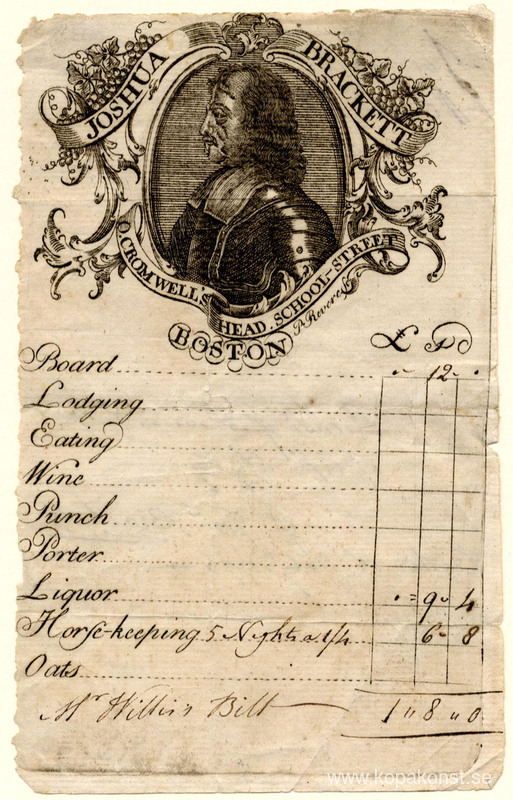 JOSHUA BRACKETT
O. CROMWELL'S HEAD. SCHOOL-STREET
P Revere
BOSTON
£ S D
Board 12
Lodging
Eating
Wine
Punch
Porter
Liquor 9 4
Horse-keeping 5 Nights a 1/4 6 8
Oats
Mr Willis's Bill 1 " 8 " 0
www.kopakonst.se